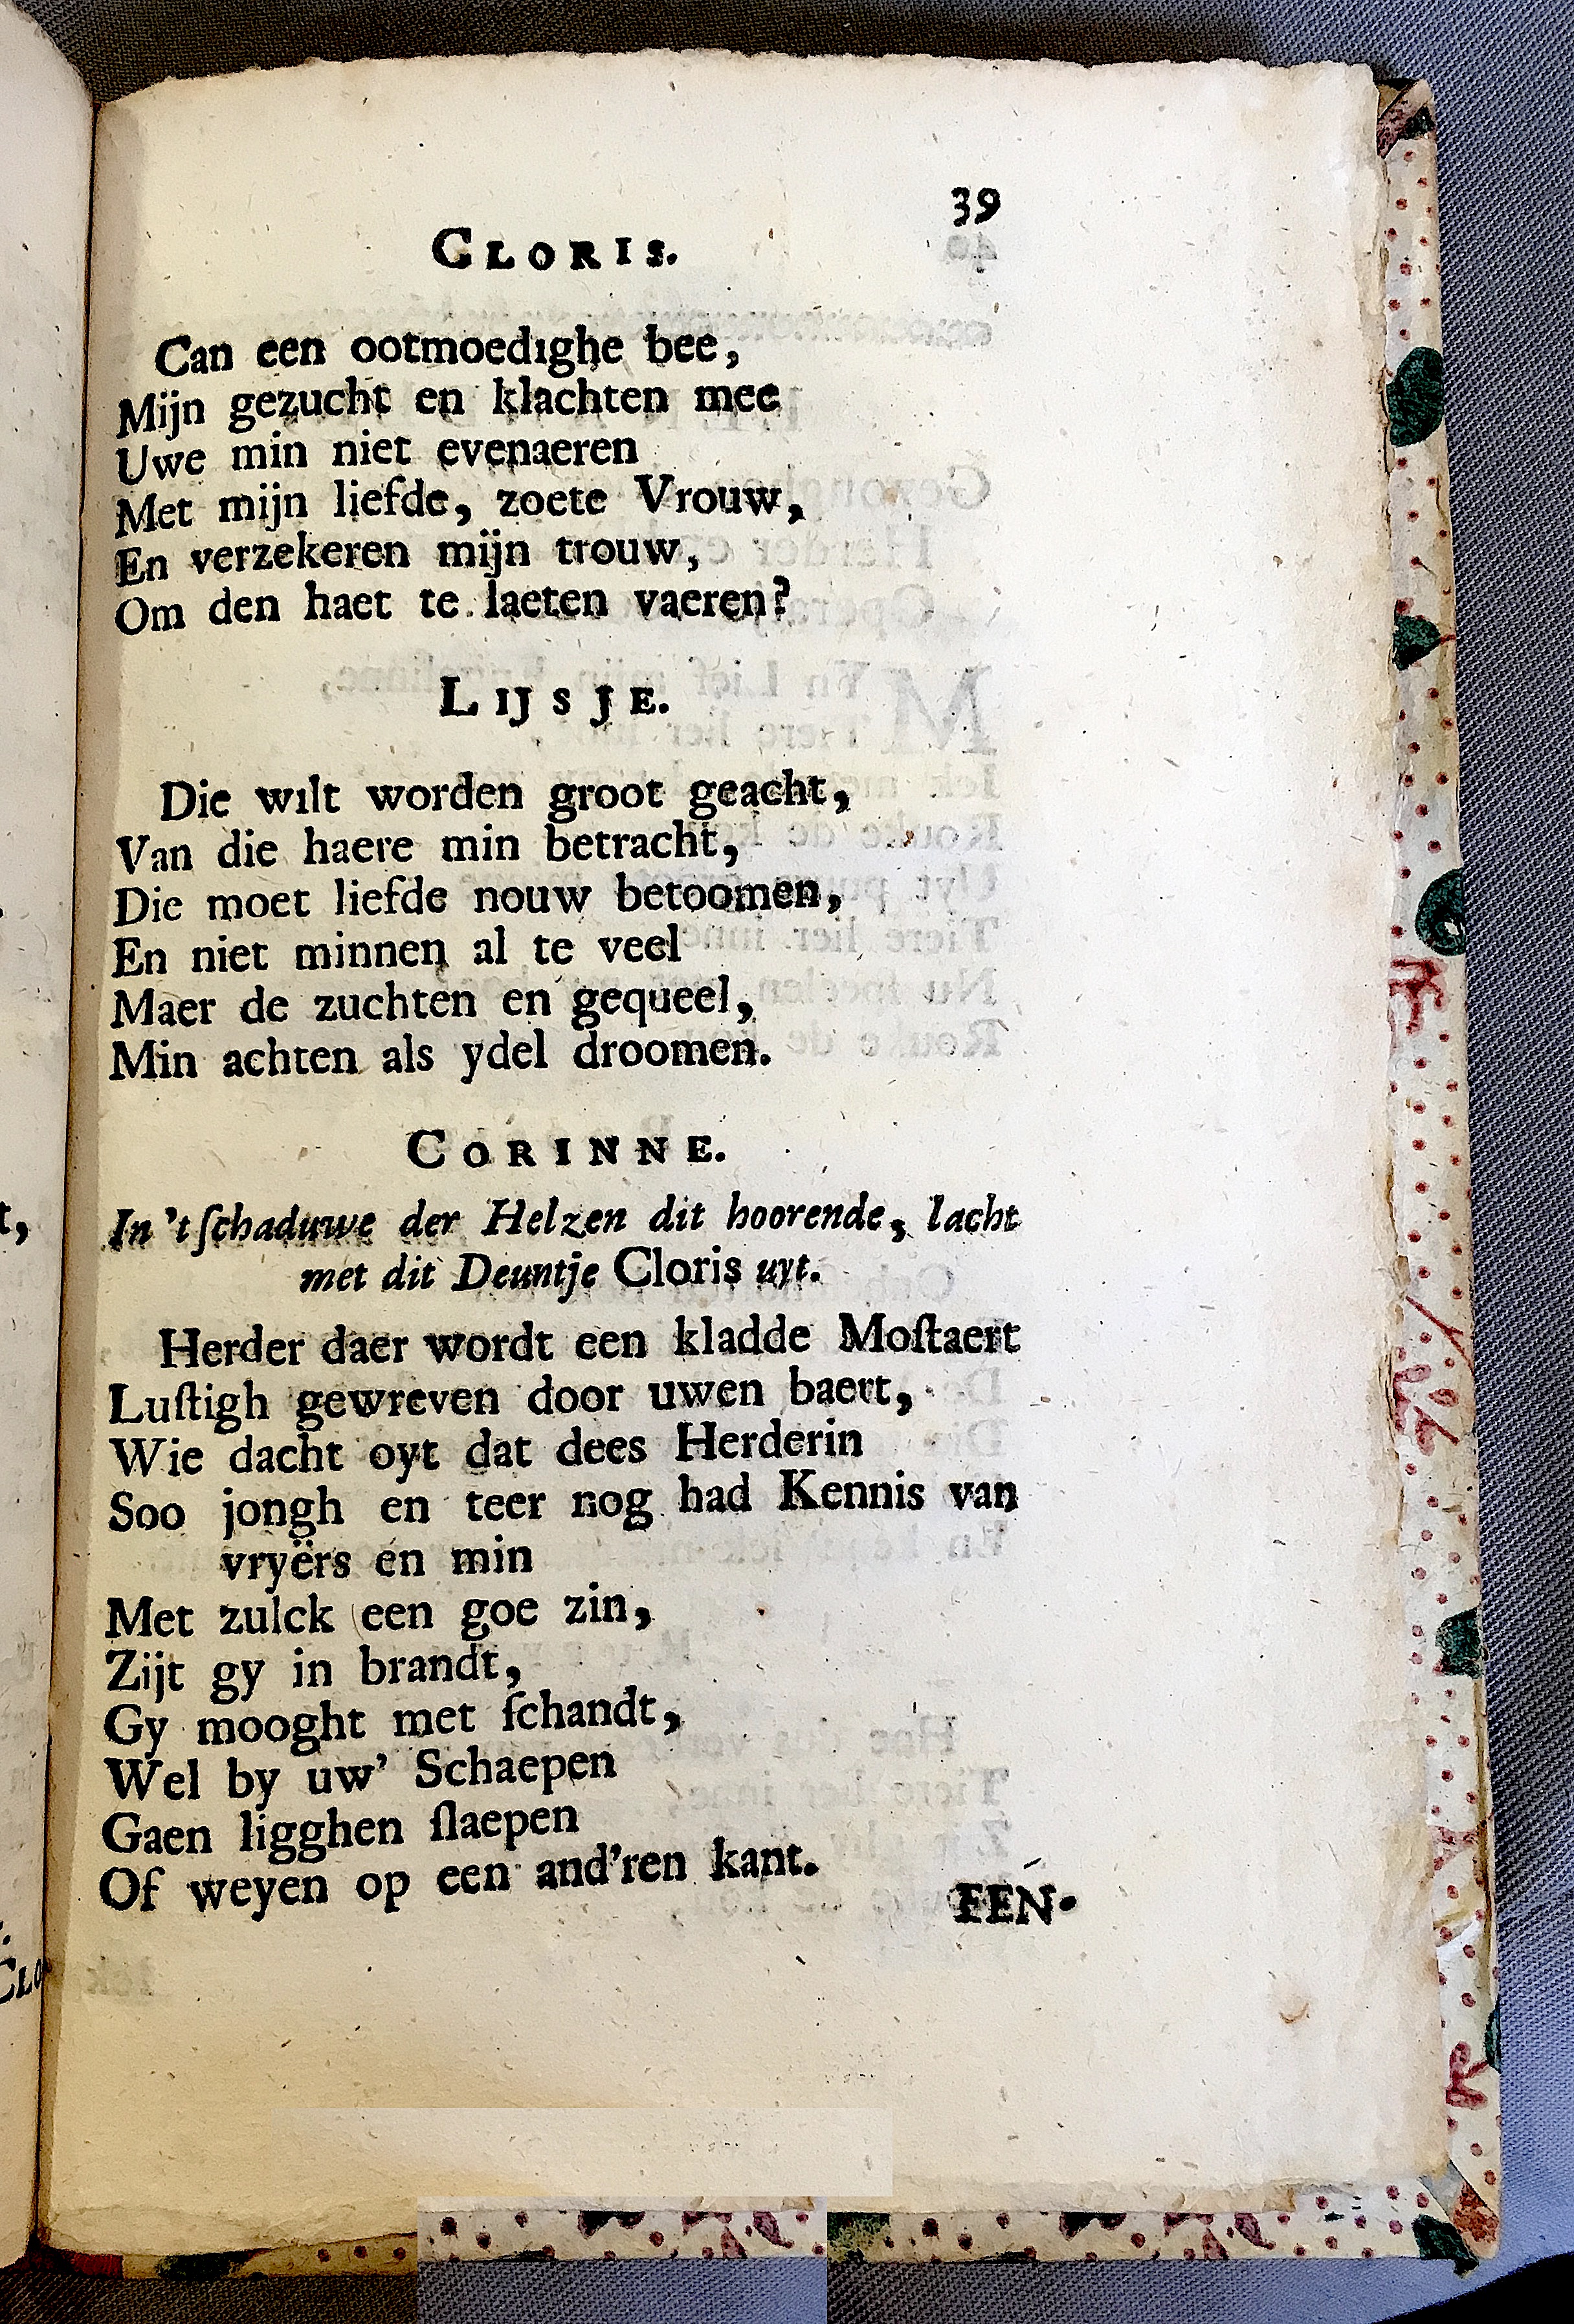 39
CLORIS.
Can een ootmoedighe bee,
Mijn gezucht en klachten mee
Uwe min niet evenaeren
Met mijn liefde, zoete Vrouw,
En verzekeren mijn trouw,
Om den haet te laeten vaeren?
LIJSJE.
Die wilt worden groot geacht,
Van die haere min betracht,
Die moet liefde nouw betoomen,
En niet minnen al te veel
Maer de zuchten en gequeel,
Min achten als ydel droomen.
CORINNE.
In 't ſchaduwe der Helzen dit hoorende, lacht
met dit Deuntje Cloris uyt.
Herder daer wordt een kladde Moſtaert
Luſtigh gewreven door uwen baert,
Wie dacht oyt dat dees Herderin
Soo jongh en teer nog had Kennis van
vryërs en min
Met zulck een goe zin,
Zijt gy in brandt,
Gy mooght met ſchandt,
Wel by uw' Schaepen
Gaen ligghen ſlaepen
Of weyen op een and'ren kant.
FEN-
t,
CLO